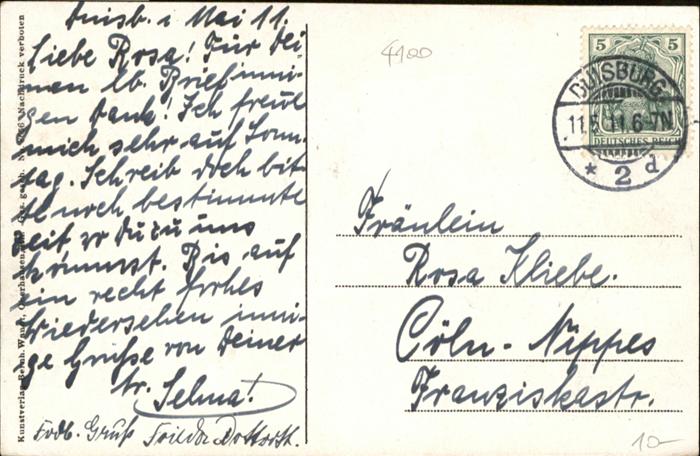 Duisb. i Mai 11.
Liebe Rosa! Für Dei-
nen lb. Brief inni-
gen Dank! Ich freue
mich sehr auf Sonn-
tag. Schreib doch bit-
te noch bestimmte
Zeit, wo Du zu uns
kommst. Bis auf
ein recht frohes
Wiedersehen inni-
ge Grüße von Deiner
tr. Selma!
Frdl. Gruß Frieda
Kunstverlag Bernh. Wandt, Oberhausen Ges. gesch. Nachdruck verboten
4100
5 5
DEUTSCHES REICH
DUISBURG
11.5.11.6-7N
* 2 d
Fräulein
Rosa Kliebe.
Cöln-Nippes
Franziskastr.
10-